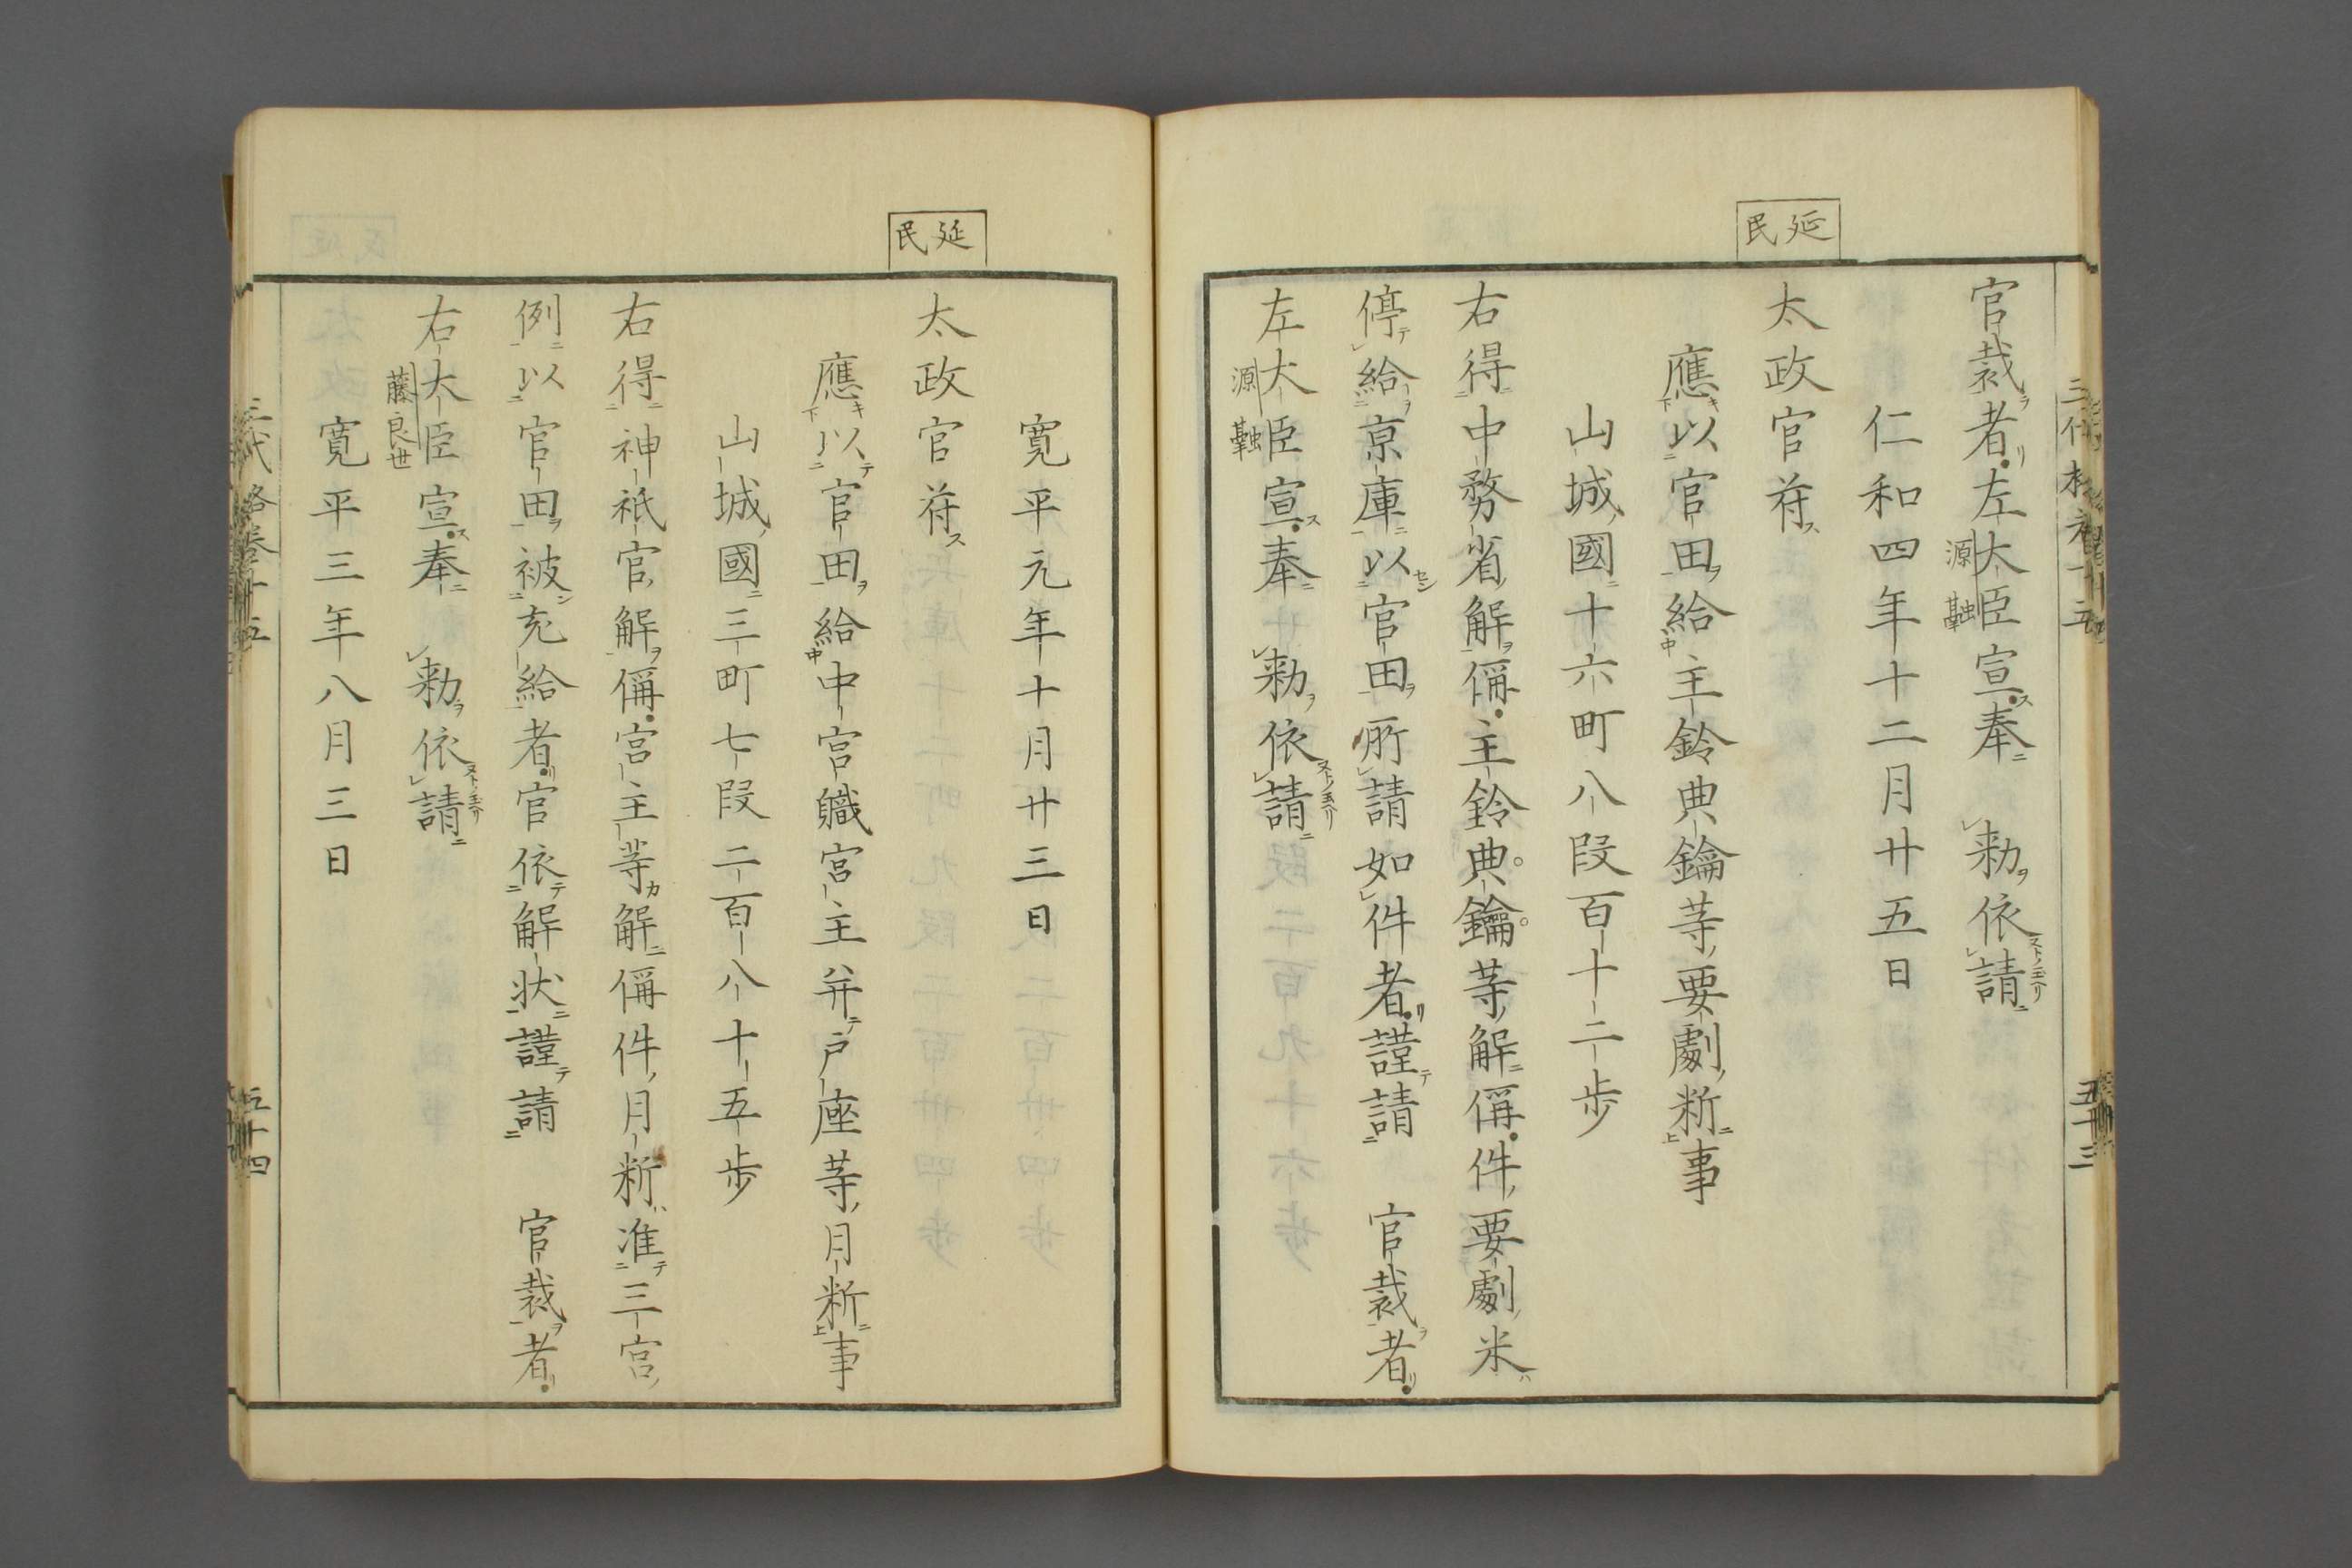 延民
官裁者左太臣宣奉　勅依請
源融
仁和四年十二月廿五日
太政官苻
應以官田給主鈴典鑰等要劇粁事
山城國十六町八段百十二歩
右得中務省解偁主鈴典鑰等解偁件要劇米
停給京庫以官田所請如件者謹請　官裁者
左太臣宣奉　勅依請
源融
延民
寛平元年十月廿三日
太政官苻
應以官田給中宮職宮主并戸座等月粁事
山城國三町七段二百八十五歩
右得神祇官解偁宮主等解偁件月粁准三宮
例以官田被充給者官依解状謹請　官裁者
右大臣宣奉　勅依請
藤良世
寛平三年八月三日
五十四